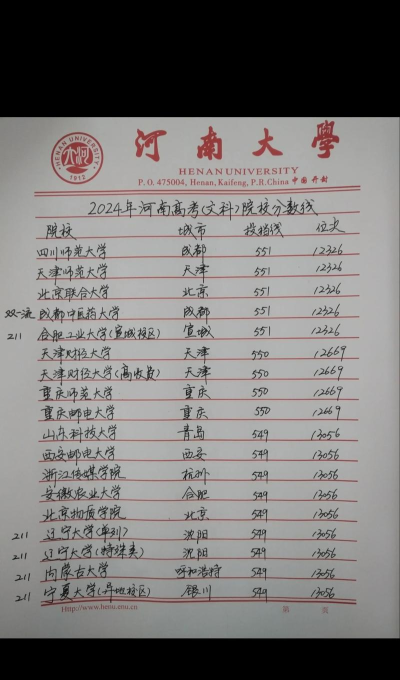 河南大學
HENAN UNIVERSITY
P.O. 475004, Henan, Kaifeng, P.R.China 中国 开封
HENAN UNIVERSITY
1912
2024年河南高考(文科)院校分数线
院校 城市 投档线 位次
四川师范大学 成都 551 12326
天津师范大学 天津 551 12326
北京联合大学 北京 551 12326
双一流 成都中医药大学 成都 551 12326
211 合肥工业大学(宣城校区) 宣城 551 12326
天津财经大学 天津 550 12669
天津财经大学(高收费) 天津 550 12669
重庆师范大学 重庆 550 12669
重庆邮电大学 重庆 550 12669
山东科技大学 青岛 549 13056
西安邮电大学 西安 549 13056
浙江传媒学院 杭州 549 13056
安徽农业大学 合肥 549 13056
北京物资学院 北京 549 13056
211 辽宁大学(单列) 沈阳 549 13056
211 辽宁大学(特殊类) 沈阳 549 13056
211 内蒙古大学 呼和浩特 549 13056
211 宁夏大学(异地校区) 银川 549 13056
Http://www.henu.edu.cn 第 页